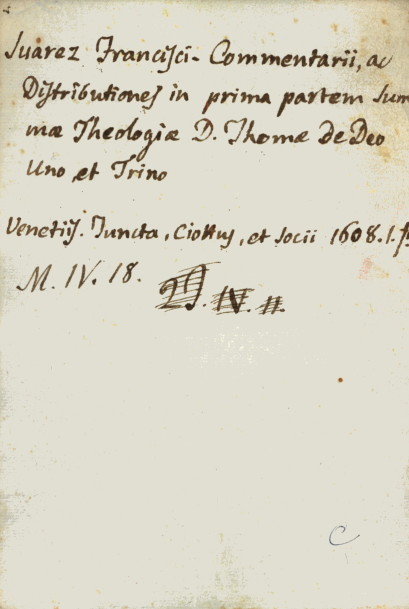 Suarez Francisci - Commentarii, ac
Distributiones in prima partem Sum
mæ Theologiæ D. Thomæ de Deo
Uno et Trino
Venetiis. Juncta, Ciottus, et socii 1608. 1.
M. IV. 18.
IV. II.
C